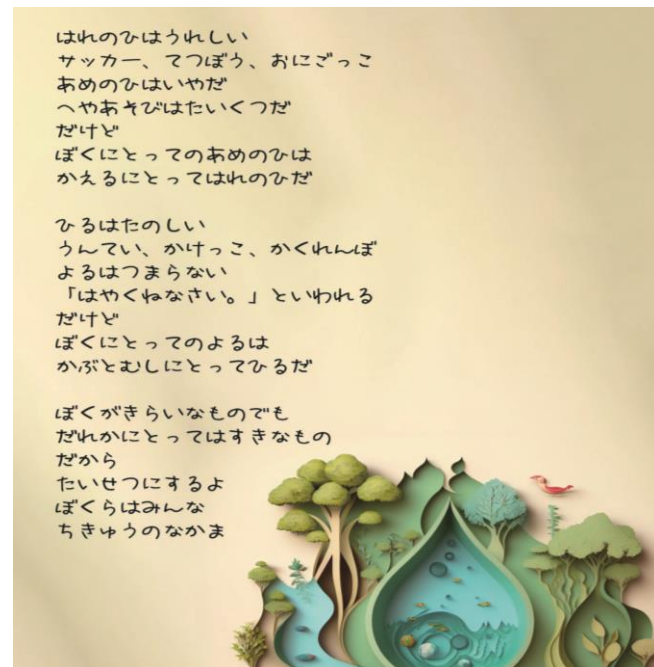 はれのひはうれしい
サッカー、てつぼう、おにごっこ
あめのひはいやだ
へやあそびはたいくつだ
だけど
ぼくにとってのあめのひは
かえるにとってはれのひだ
ひるはたのしい
うんてい、かけっこ、かくれんぼ
よるはつまらない
「はやくねなさい。」といわれる
だけど
ぼくにとってのよるは
かぶとむしにとってひるだ
ぼくがきらいなものでも
だれかにとってはすきなもの
だから
たいせつにするよ
ぼくらはみんな
ちきゅうのなかま